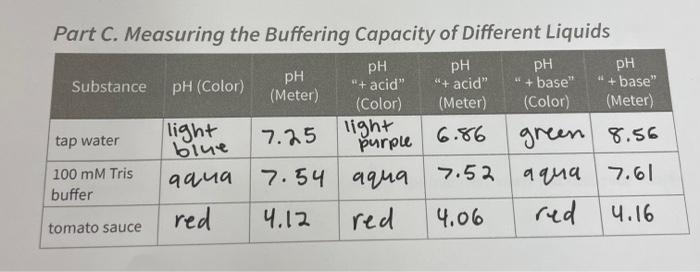 Part C. Measuring the Buffering Capacity of Different Liquids
Substance pH (Color) pH (Meter) pH "+ acid" (Color) pH "+ acid" (Meter) pH "+ base" (Color) pH "+ base" (Meter)
tap water light blue 7.25 light purple 6.86 green 8.56
100 mM Tris buffer aqua 7.54 aqua 7.52 aqua 7.61
tomato sauce red 4.12 red 4.06 red 4.16